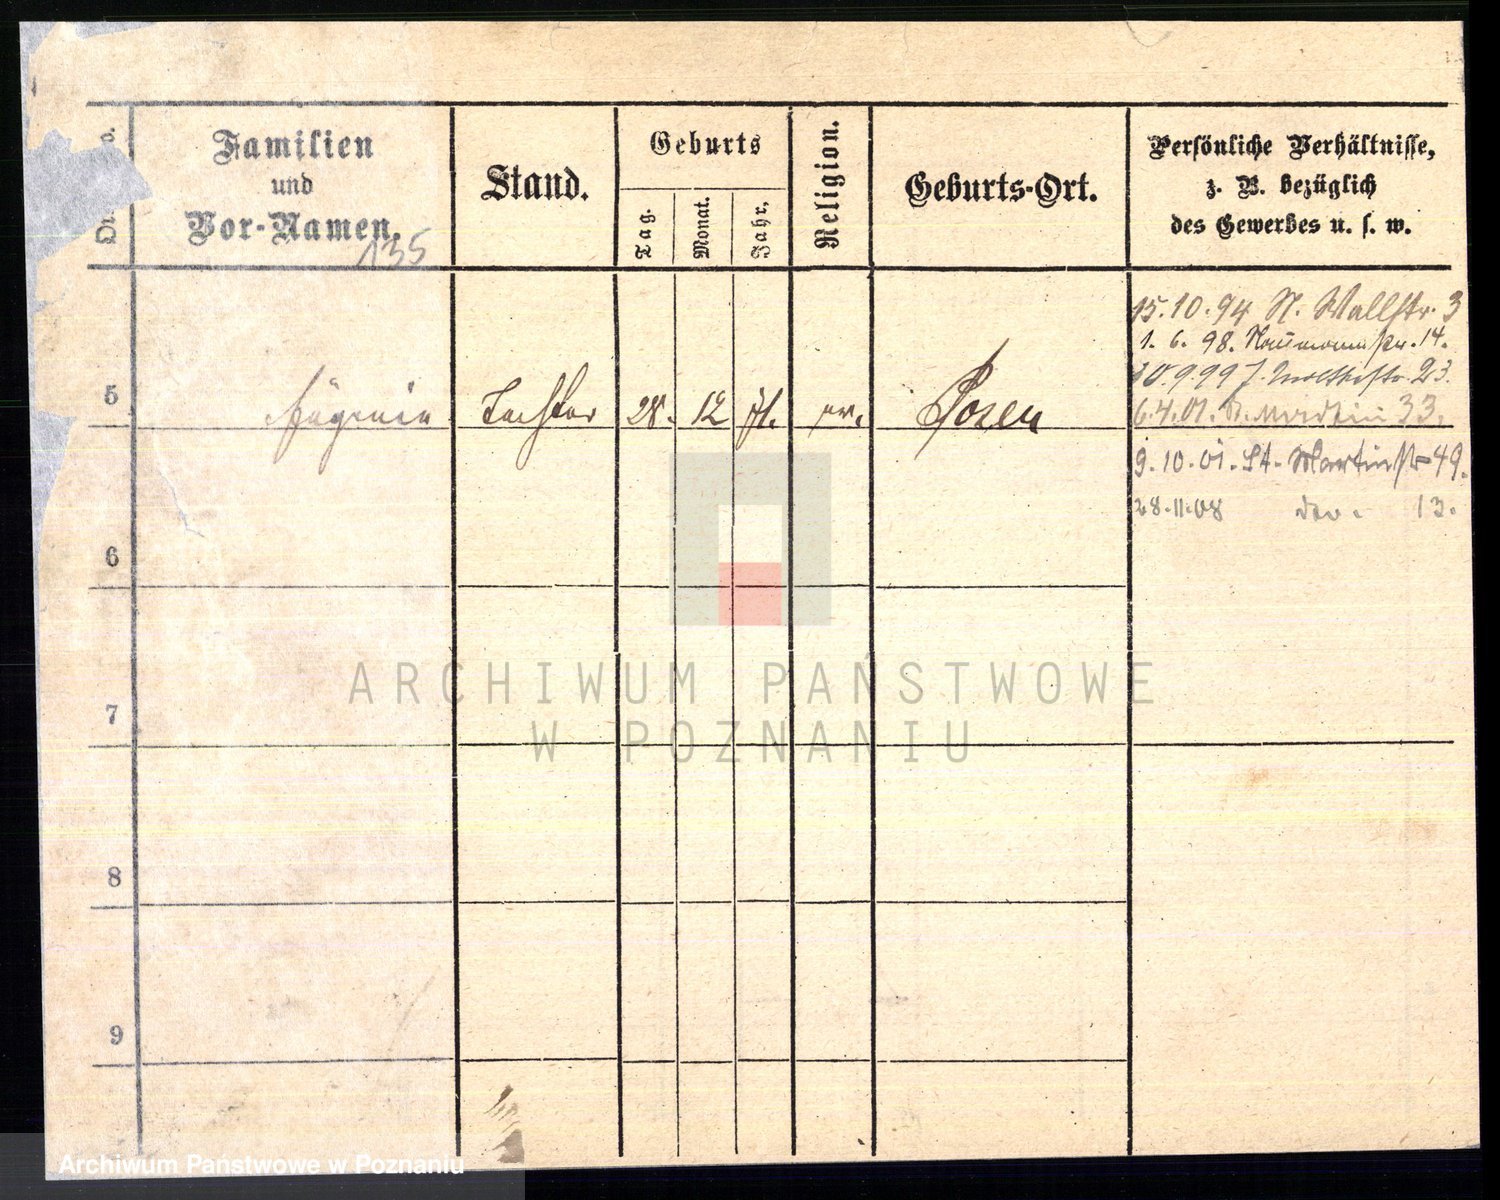 Familien
und
Vor-Namen.
135
Stand.
Geburts
Tag.
Monat.
Jahr.
Religion.
Geburts-Ort.
Persönliche Verhältnisse,
z. B. bezüglich
des Gewerbes u. s. w.
15.10.94 N. Wallstr. 3
1. 6. 98. Naumannstr. 14.
10.9.99 Moltkestr. 23.
5 Eugenie Tochter 28. 12 ev. Posen
6.4.01. St. Martin 33.
9.10.01. St. Martinstr 49.
28.11.08 13.
6
7
8
9
ARCHIWUM PAŃSTWOWE
W POZNANIU
Archiwum Państwowe w Poznaniu